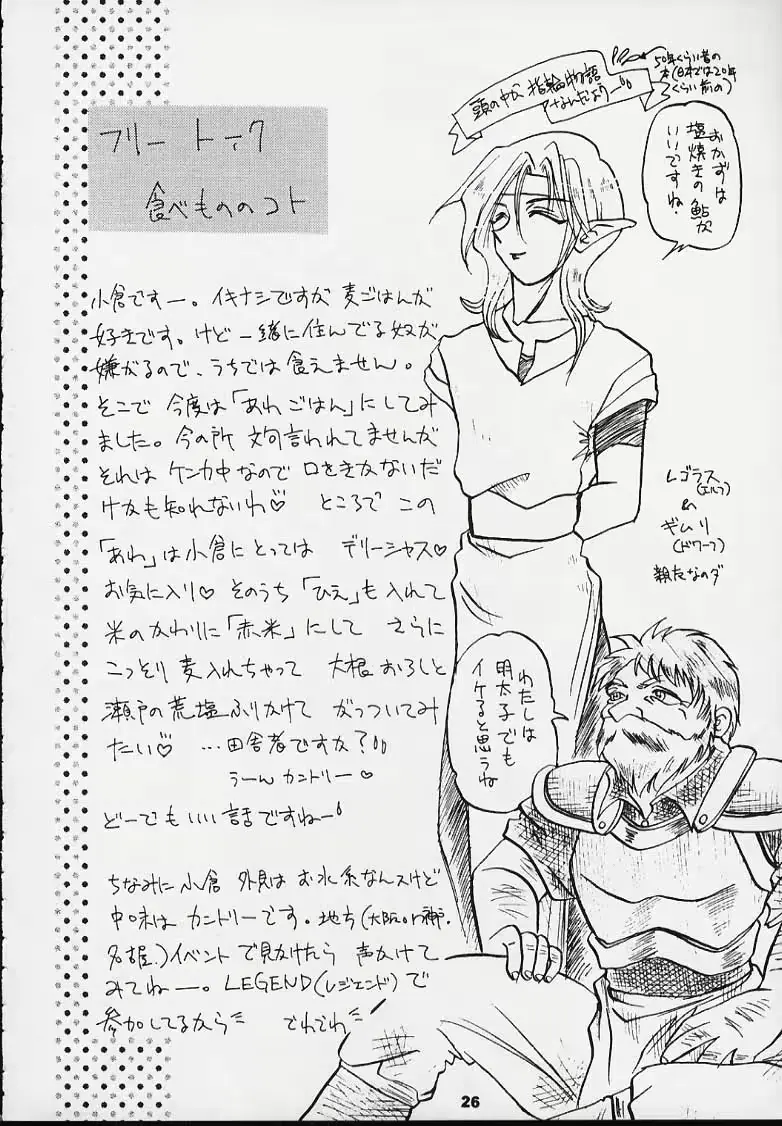 フリートーク
食べもののコト
小倉ですー。イキナシですが麦ごはんが
好きです。けど一緒に住んでる奴が
嫌がるので、うちでは食えません。
そこで今度は「あわごはん」にしてみ
ました。今の所文句言われてませんが
それはケンカ中なので口をきかないだ
けかも知れないわ♡ ところでこの
「あわ」は小倉にとってはデリーシャス♡
お気に入り♡ そのうち「ひえ」も入れて
米のかわりに「赤米」にして さらに
こっそり麦入れちゃって 大根おろしと
瀬戸の荒塩ふりかけて がっついてみ
たい♡ …田舎者ですか?
うーんカントリー♡
どーでもいい話ですねー
ちなみに小倉 外見はお水系なんスけど
中味はカントリーです。地方(大阪or神戸.
名古屋.)イベントで見かけたら声かけて
みてねー。LEGEND(レジェンド)で
参加してるから でわでわ
頭の中が指輪物語
なんだよりー
50年くらい昔の
本(日本では20年
くらい前の)
おかずは
塩焼きの鮎が
いいですね.
レゴラス
(エルフ)
&
ギムリ
(ドワーフ)
親友なのダ
わたしは
明太子でも
イケると思うね
26